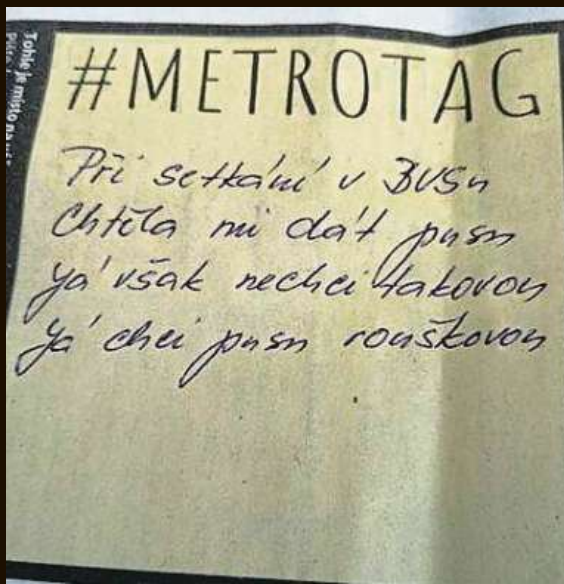 Tohle je místo na
#METROTAG
Při setkání v BUSu
Chtěla mi dát pusu
Já však nechci takovou
Já chci pusu rouškovou